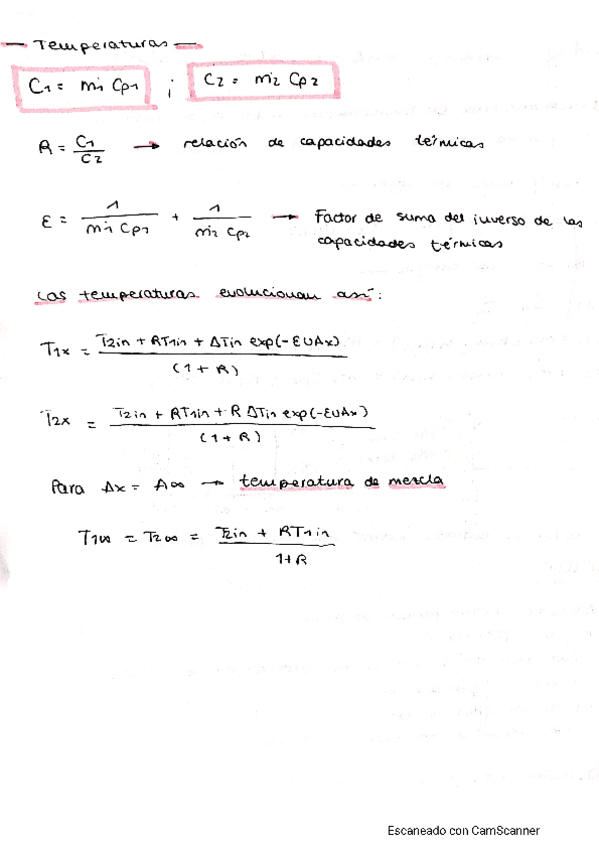 — Temperaturas —
C1 = ṁ1 Cp1 ; C2 = ṁ2 Cp2
R = C1/C2 → relación de capacidades térmicas
ε = 1/(ṁ1 Cp1) + 1/(ṁ2 Cp2) → Factor de suma del inverso de las
capacidades térmicas
Las temperaturas evolucionan así:
T1x = (T2in + RT1in + ΔTin exp(-εUAx))/(1+R)
T2x = (T2in + RT1in + R ΔTin exp(-εUAx))/(1+R)
Para Ax = A∞ → temperatura de mezcla
T1∞ = T2∞ = (T2in + RT1in)/(1+R)
Escaneado con CamScanner